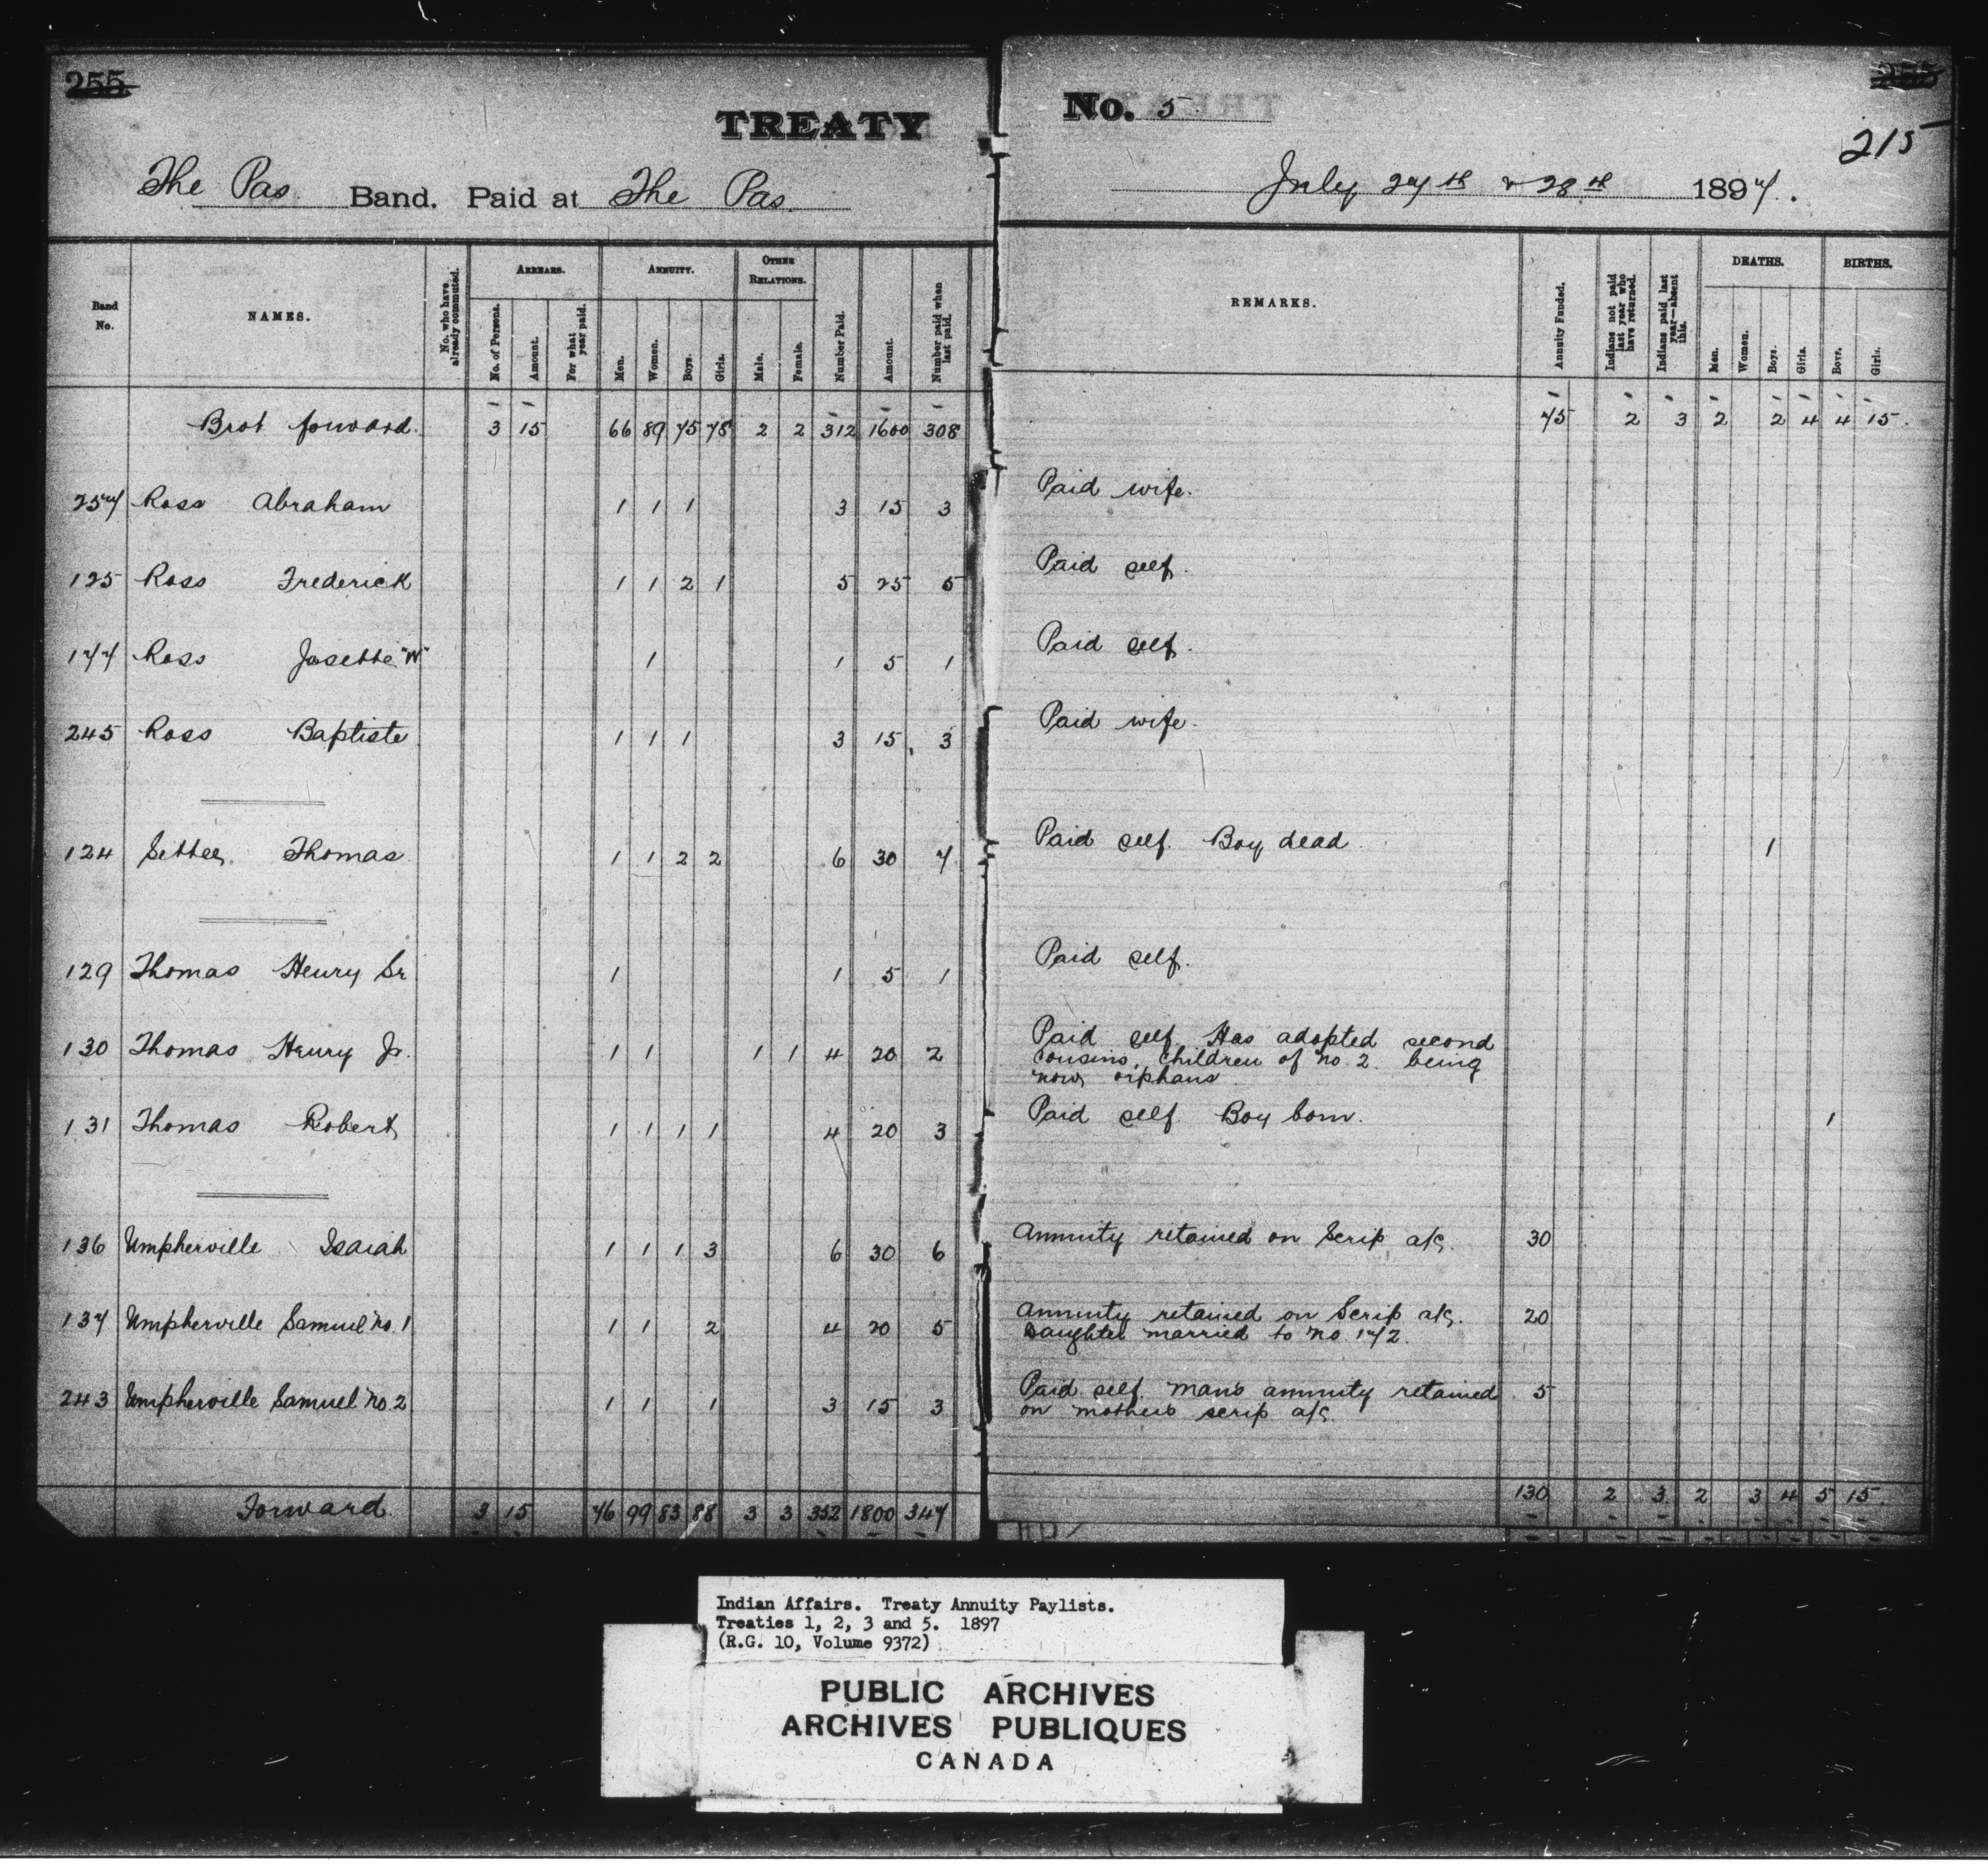 255
TREATY
The Pas Band. Paid at The Pas.
No. 5
255
215
July 27th & 28th 1897.
Band No.
NAMES.
No. who have already commuted.
ARREARS.
No. of Persons.
Amount.
For what year paid.
ANNUITY.
Men.
Women.
Boys.
Girls.
OTHER RELATIONS.
Male.
Female.
Number Paid.
Amount.
Number paid when last paid.
REMARKS.
Annuity Funded.
Indians not paid last year who have returned.
Indians paid last year—absent this.
DEATHS.
Men.
Women.
Boys.
Girls.
BIRTHS.
Boys.
Girls.
Brot forward. 3 15 66 89 75 78 2 2 312 1600 308 75 2 3 2 2 4 4 15.
257 Ross Abraham 1 1 1 3 15 3 Paid wife.
125 Ross Frederick 1 1 2 1 5 25 5 Paid self.
177 Ross Josette "W" 1 1 5 1 Paid self.
245 Ross Baptiste 1 1 1 3 15 3 Paid wife.
124 Settee Thomas 1 1 2 2 6 30 7 Paid self. Boy dead 1
129 Thomas Henry Sr 1 1 5 1 Paid self.
130 Thomas Henry Jr. 1 1 1 1 4 20 2 Paid self. Has adopted second
cousins, children of No. 2. being
now orphans.
131 Thomas Robert 1 1 1 1 4 20 3 Paid self Boy born. 1
136 Umpherville Isaiah 1 1 1 3 6 30 6 Annuity retained on Scrip a/c. 30
137 Umpherville Samuel No. 1 1 1 2 4 20 5 Annuity retained on Scrip a/c. 20
Daughter married to No. 172.
243 Umpherville Samuel No. 2 1 1 1 3 15 3 Paid self. Man's annuity retained 5
on mothers scrip a/c.
Forward. 3 15 76 99 83 88 3 3 352 1800 347 130 2 3 2 3 4 5 15.
Indian Affairs. Treaty Annuity Paylists.
Treaties 1, 2, 3 and 5. 1897
(R.G. 10, Volume 9372)
PUBLIC ARCHIVES
ARCHIVES PUBLIQUES
CANADA